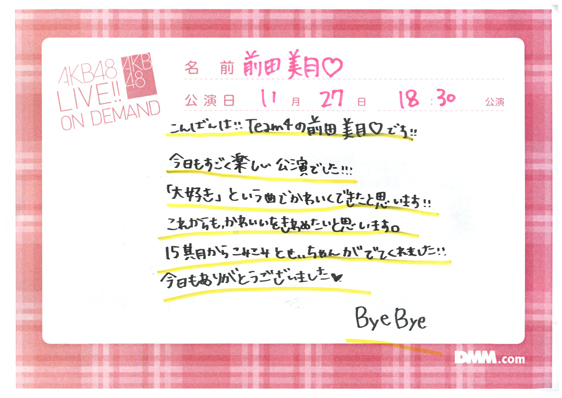 AKB48
LIVE!!
ON DEMAND
AKB
48
名 前 前田 美月♡
公演日 11 月 27 日 18 : 30 公演
こんばんは!! Team4の前田 美月♡です!!
今日もすごく楽しい公演でした!!!
「大好き」という曲でかわいくできたと思います!!
これからも、かわいいをきわめたいと思います。
15期目から ちゃんがでてくれました!!
今日もありがとうございました♥
Bye Bye
DMM.com